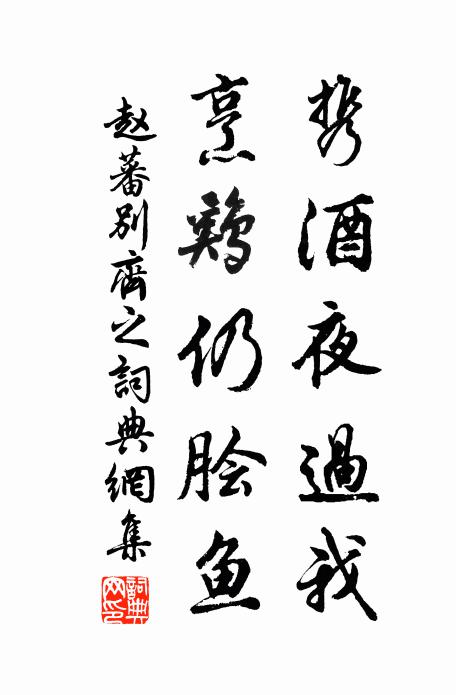 携酒夜過我
烹鷄仍脍鱼
赵蕃别齊之詞典網集
詞典網印